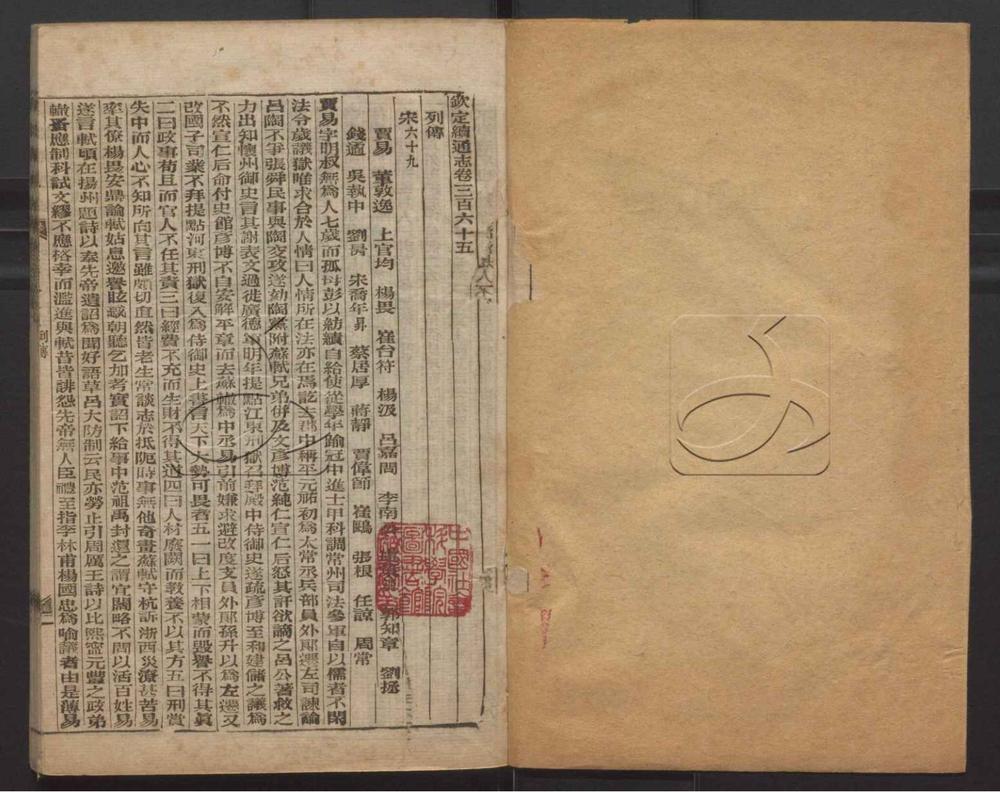 欽定續通志卷三百六十五
列傳
宋六十九
賈易 董敦逸 上官均 楊畏 崔台符 楊汲 呂嘉問 李南公 郭知章 劉拯
錢遹 吳執中 劉昺 宋喬年昇 蔡居厚 蔣靜 賈偉節 崔鶠 張根 任諒 周常
賈易字明叔無為人七歲而孤母彭以紡績自給使從學年餘冠中進士甲科調常州司法參軍自以儒者不閑
法令歲議獄唯求合於人情曰人情所在法亦在焉訖去郡中稱平元祐初為太常丞兵部員外郎遷左司諫論
呂陶不爭張舜民事與陶交攻遂劾陶黨附蘇軾兄弟併及文彥博范純仁宣仁后怒其訐欲謫之呂公著救之
力出知懷州御史言其謝表文過徙廣德軍明年提點江東刑獄召拜殿中侍御史遂疏彥博至和建儲之議為
不然宣仁后命付史館彥博不自安解平章而去蘇轍為中丞易引前嫌求避改度支員外郎孫升以為左遷又
改國子司業不拜提點河東刑獄復入為侍御史上書言天下大勢可畏者五一曰上下相蒙而毀譽不得其眞
二曰政事苟且而官人不任其責三曰經費不充而生財不得其道四曰人材廢闕而教養不以其方五曰刑賞
失中而人心不知所向其言雖頗切直然皆老生常談志於抵阨時事無他奇畫蘇軾守杭訴浙西災潦甚苦易
率其僚楊畏安鼎論軾姑息邀譽眩惑朝聽乞加考實詔下給事中范祖禹封還之謂宜闊略不問以活百姓易
遂言軾頃在揚州題詩以奉先帝遺詔為聞好語草呂大防制云民亦勞止引周厲王詩以比熙寧元豐之政弟
轍蚤應制科試文繆不應格幸而濫進與軾昔皆誹怨先帝無人臣禮至指李林甫楊國忠為喻議者由是薄易
列傳